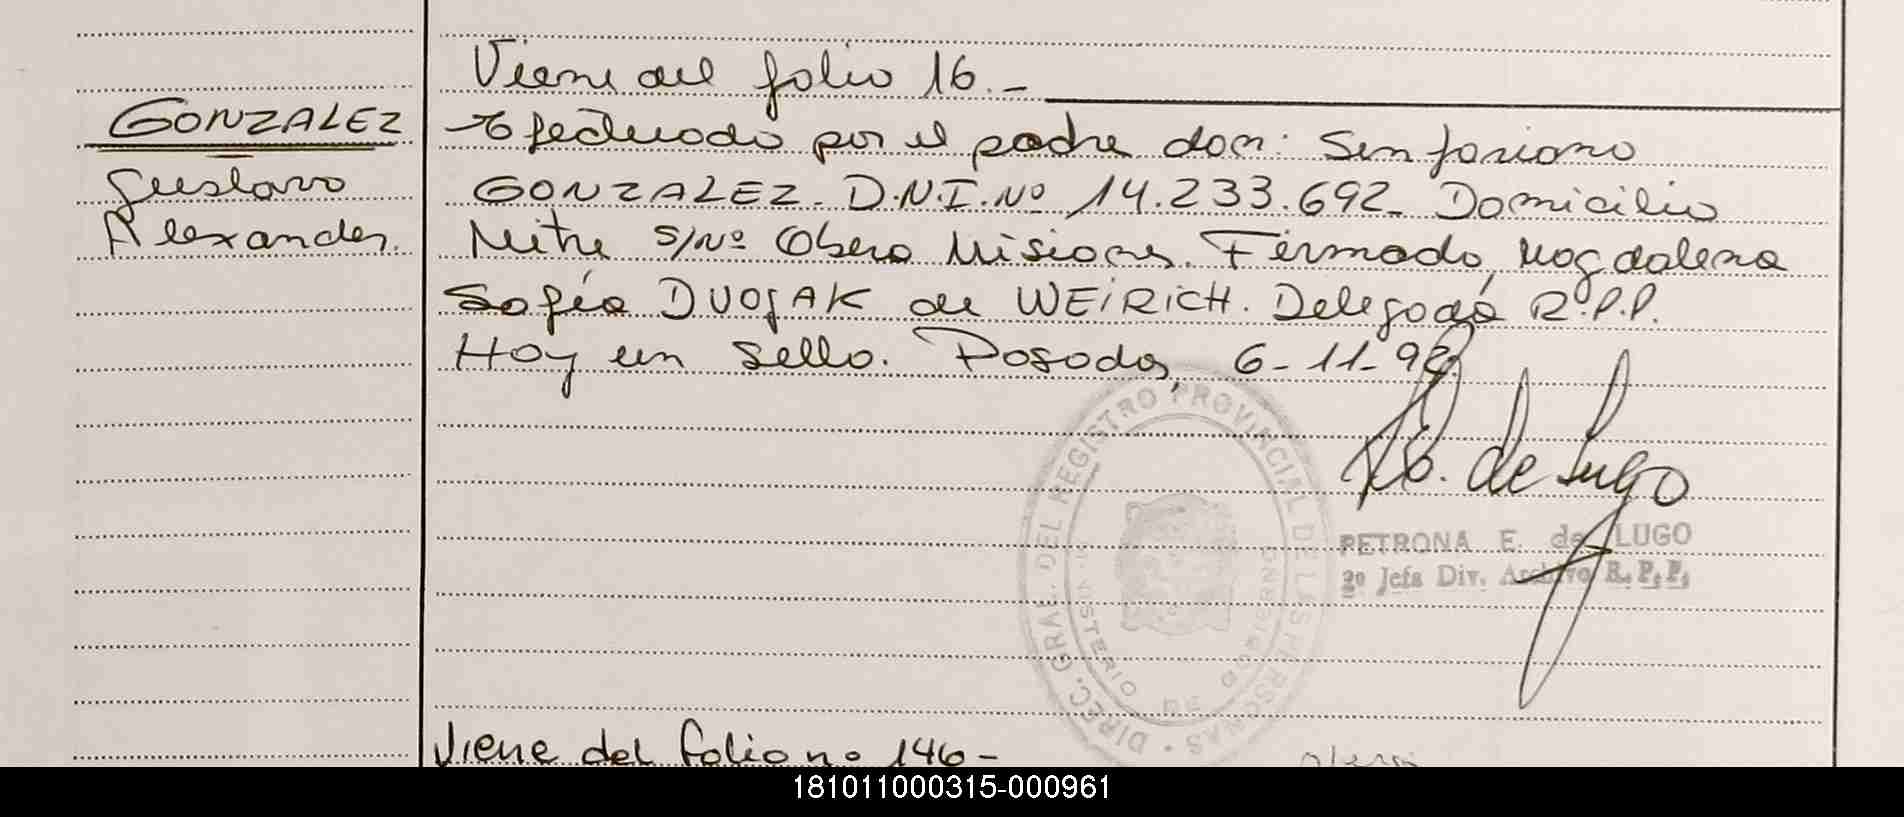 Viene del folio 16.-
GONZALEZ
Gustavo
Alexander.
Efectuado por el padre don: Sinforiano
GONZALEZ. D.N.I.Nº 14.233.692. Domicilio
Mitre S/Nº Obera Misiones. Firmado, Magdalena
Sofía DVOJAK de WEIRICH. Delegada R.P.P.
Hay un sello. Posadas, 6-11-92
E. de Lugo
PETRONA E. de LUGO
2º Jefa Div. Archivo R.P.P.
DIREC. GRAL. DEL REGISTRO PROVINCIAL DE LAS PERSONAS
MINISTERIO DE GOBIERNO
Viene del folio nº 146-
181011000315-000961